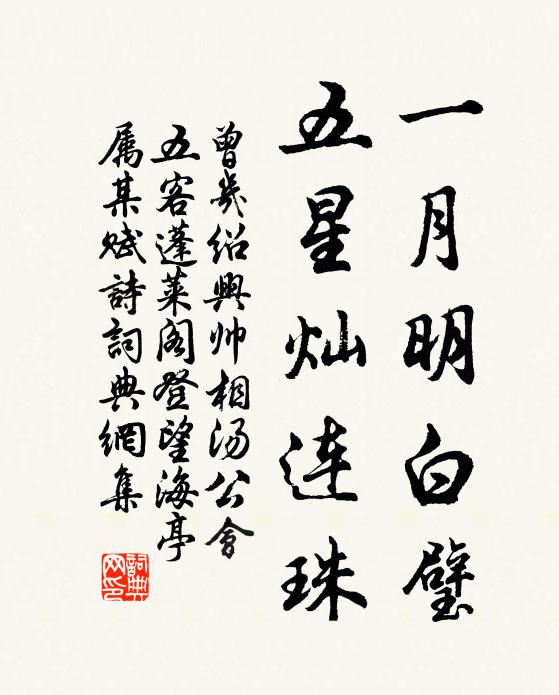 一月明白璧
五星灿连珠
曾幾绍興帅相汤公會
五客蓬莱阁登望海亭
属某赋詩詞典網集
詞典網印